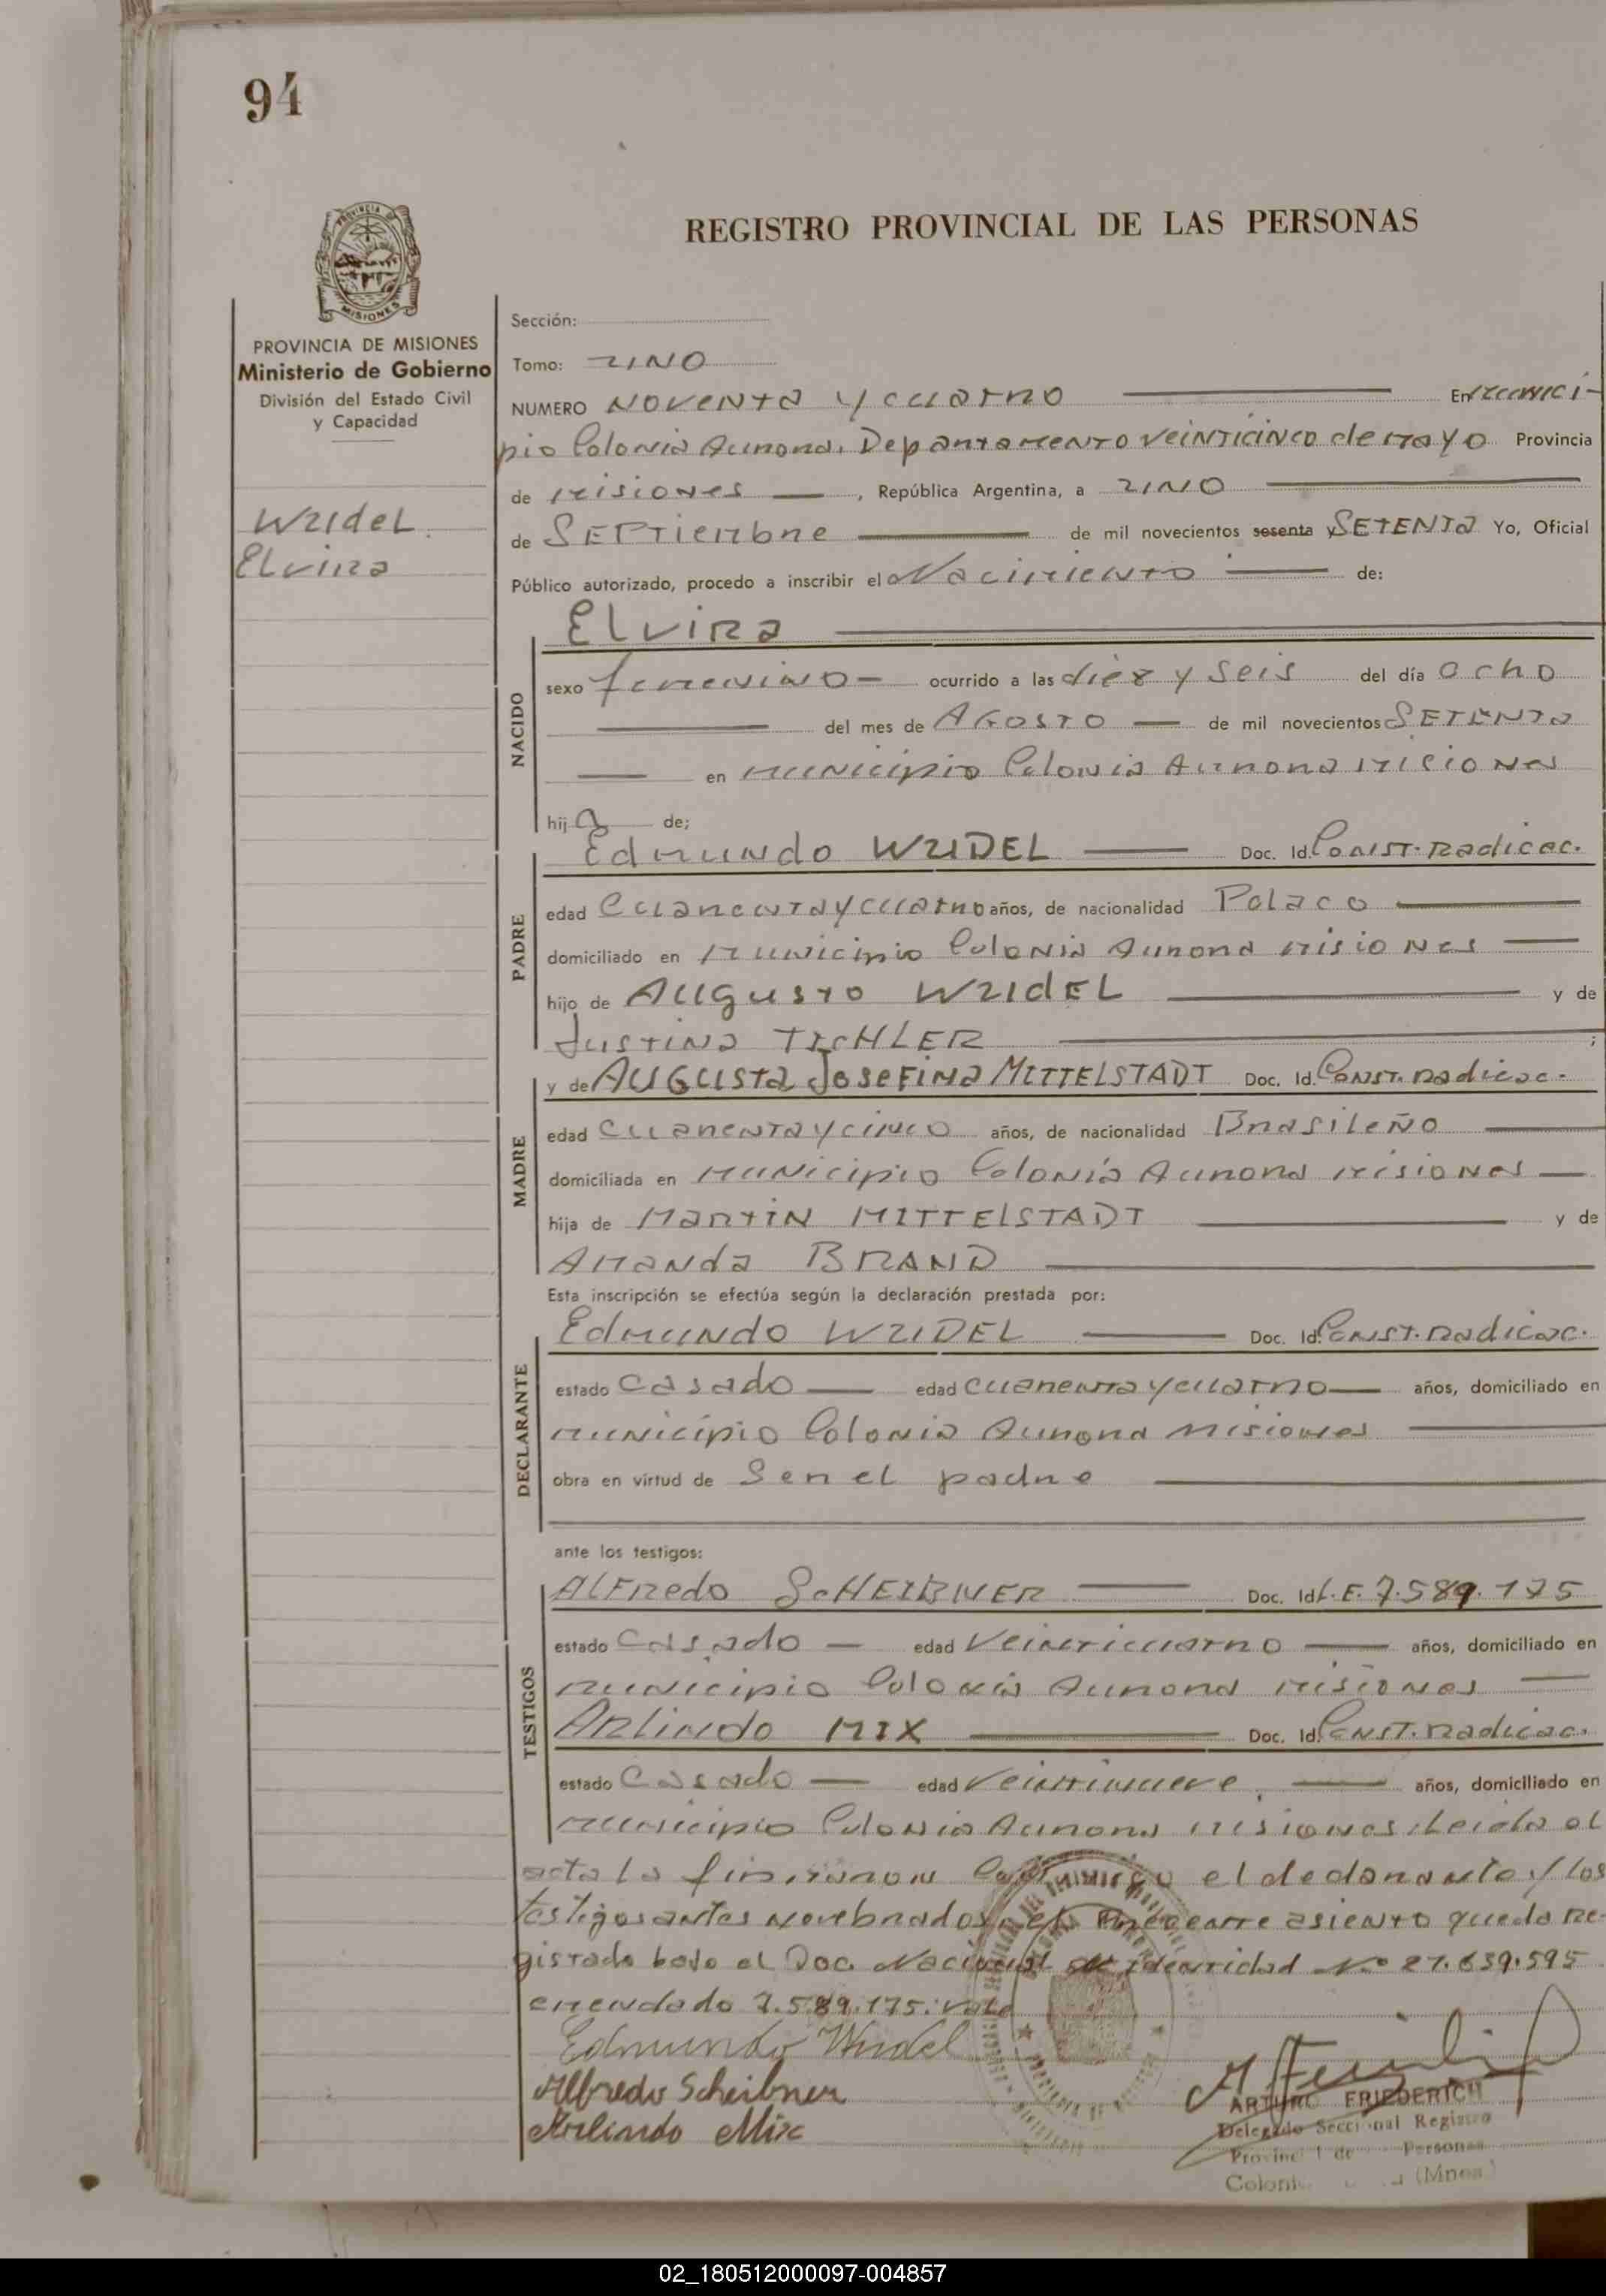 94
REGISTRO PROVINCIAL DE LAS PERSONAS
PROVINCIA DE MISIONES
MISIONES
PROVINCIA DE MISIONES
Ministerio de Gobierno
División del Estado Civil
y Capacidad
Wudel
Elvira
Sección:
Tomo: UNO
NUMERO Noventa y cuatro En Munici-
pio Colonia Aurora, Departamento Veinticinco de Mayo Provincia
de Misiones, República Argentina, a UNO
de SEPTiembre de mil novecientos sesenta y SETENTA Yo, Oficial
Público autorizado, procedo a inscribir el Nacimiento de:
NACIDO
Elvira
sexo femenino ocurrido a las diez y seis del día ocho
del mes de AGOSTO de mil novecientos SETENTA
en Municipio Colonia Aurora Misiones
hija de;
PADRE
Edmundo WUDEL Doc. Id. Const. Radicac.
edad Cuarenta y cuatro años, de nacionalidad Polaco
domiciliado en Municipio Colonia Aurora Misiones
hijo de Augusto WUDEL y de
Justina TICHLER ;
MADRE
y de AUGUSTA Josefina MITTELSTADT Doc. Id. Const. Radicac.
edad Cuarenta y cinco años, de nacionalidad Brasileño
domiciliada en Municipio Colonia Aurora Misiones
hija de Martin MITTELSTADT y de
Amanda BRAND
Esta inscripción se efectúa según la declaración prestada por:
DECLARANTE
Edmundo WUDEL Doc. Id. Const. Radicac.
estado Casado edad cuarenta y cuatro años, domiciliado en
Municipio Colonia Aurora Misiones
obra en virtud de Ser el padre
ante los testigos:
TESTIGOS
Alfredo SCHEIBNER Doc. Id L.E. 7.589.175
estado Casado edad Veinticuatro años, domiciliado en
Municipio Colonia Aurora Misiones
Arlindo MIX Doc. Id. Const. Radicac.
estado Casado edad Veintinueve, años, domiciliado en
Municipio Colonia Aurora Misiones, Leida el
acta la firmaron conmigo el declarante y los
testigos antes nombrados, el presente asiento queda re-
gistrado bajo el Doc. Nacional de Identidad No 21.639.595
enmendado 7.589.175: vale
Edmundo Wudel
Alfredo Scheibner
Arlindo Mix
ARTURO FRIEDERICH
Delegado Seccional Registro
Provincial de Personas
Colonia (Mnes.)
02_180512000097-004857